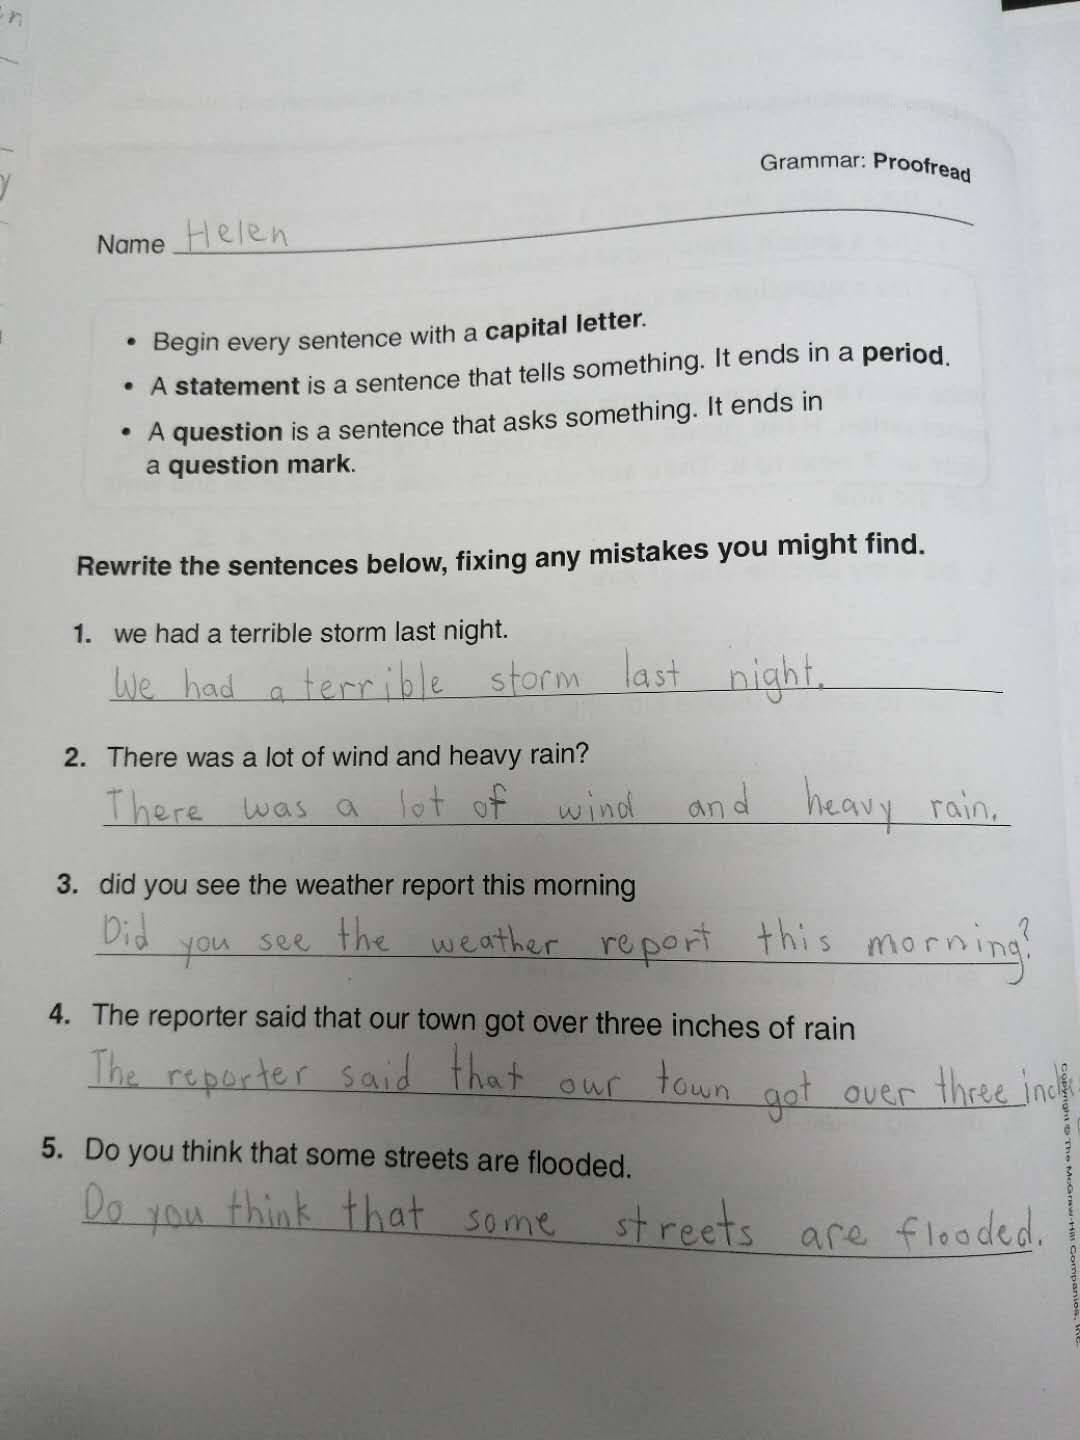 Grammar: Proofread
Name Helen
• Begin every sentence with a capital letter.
• A statement is a sentence that tells something. It ends in a period.
• A question is a sentence that asks something. It ends in
a question mark.
Rewrite the sentences below, fixing any mistakes you might find.
1. we had a terrible storm last night.
We had a terrible storm last night.
2. There was a lot of wind and heavy rain?
There was a lot of wind and heavy rain.
3. did you see the weather report this morning
Did you see the weather report this morning?
4. The reporter said that our town got over three inches of rain
The reporter said that our town got over three
5. Do you think that some streets are flooded.
Do you think that some streets are flooded.
Copyright © The McGraw-Hill Companies, Inc.